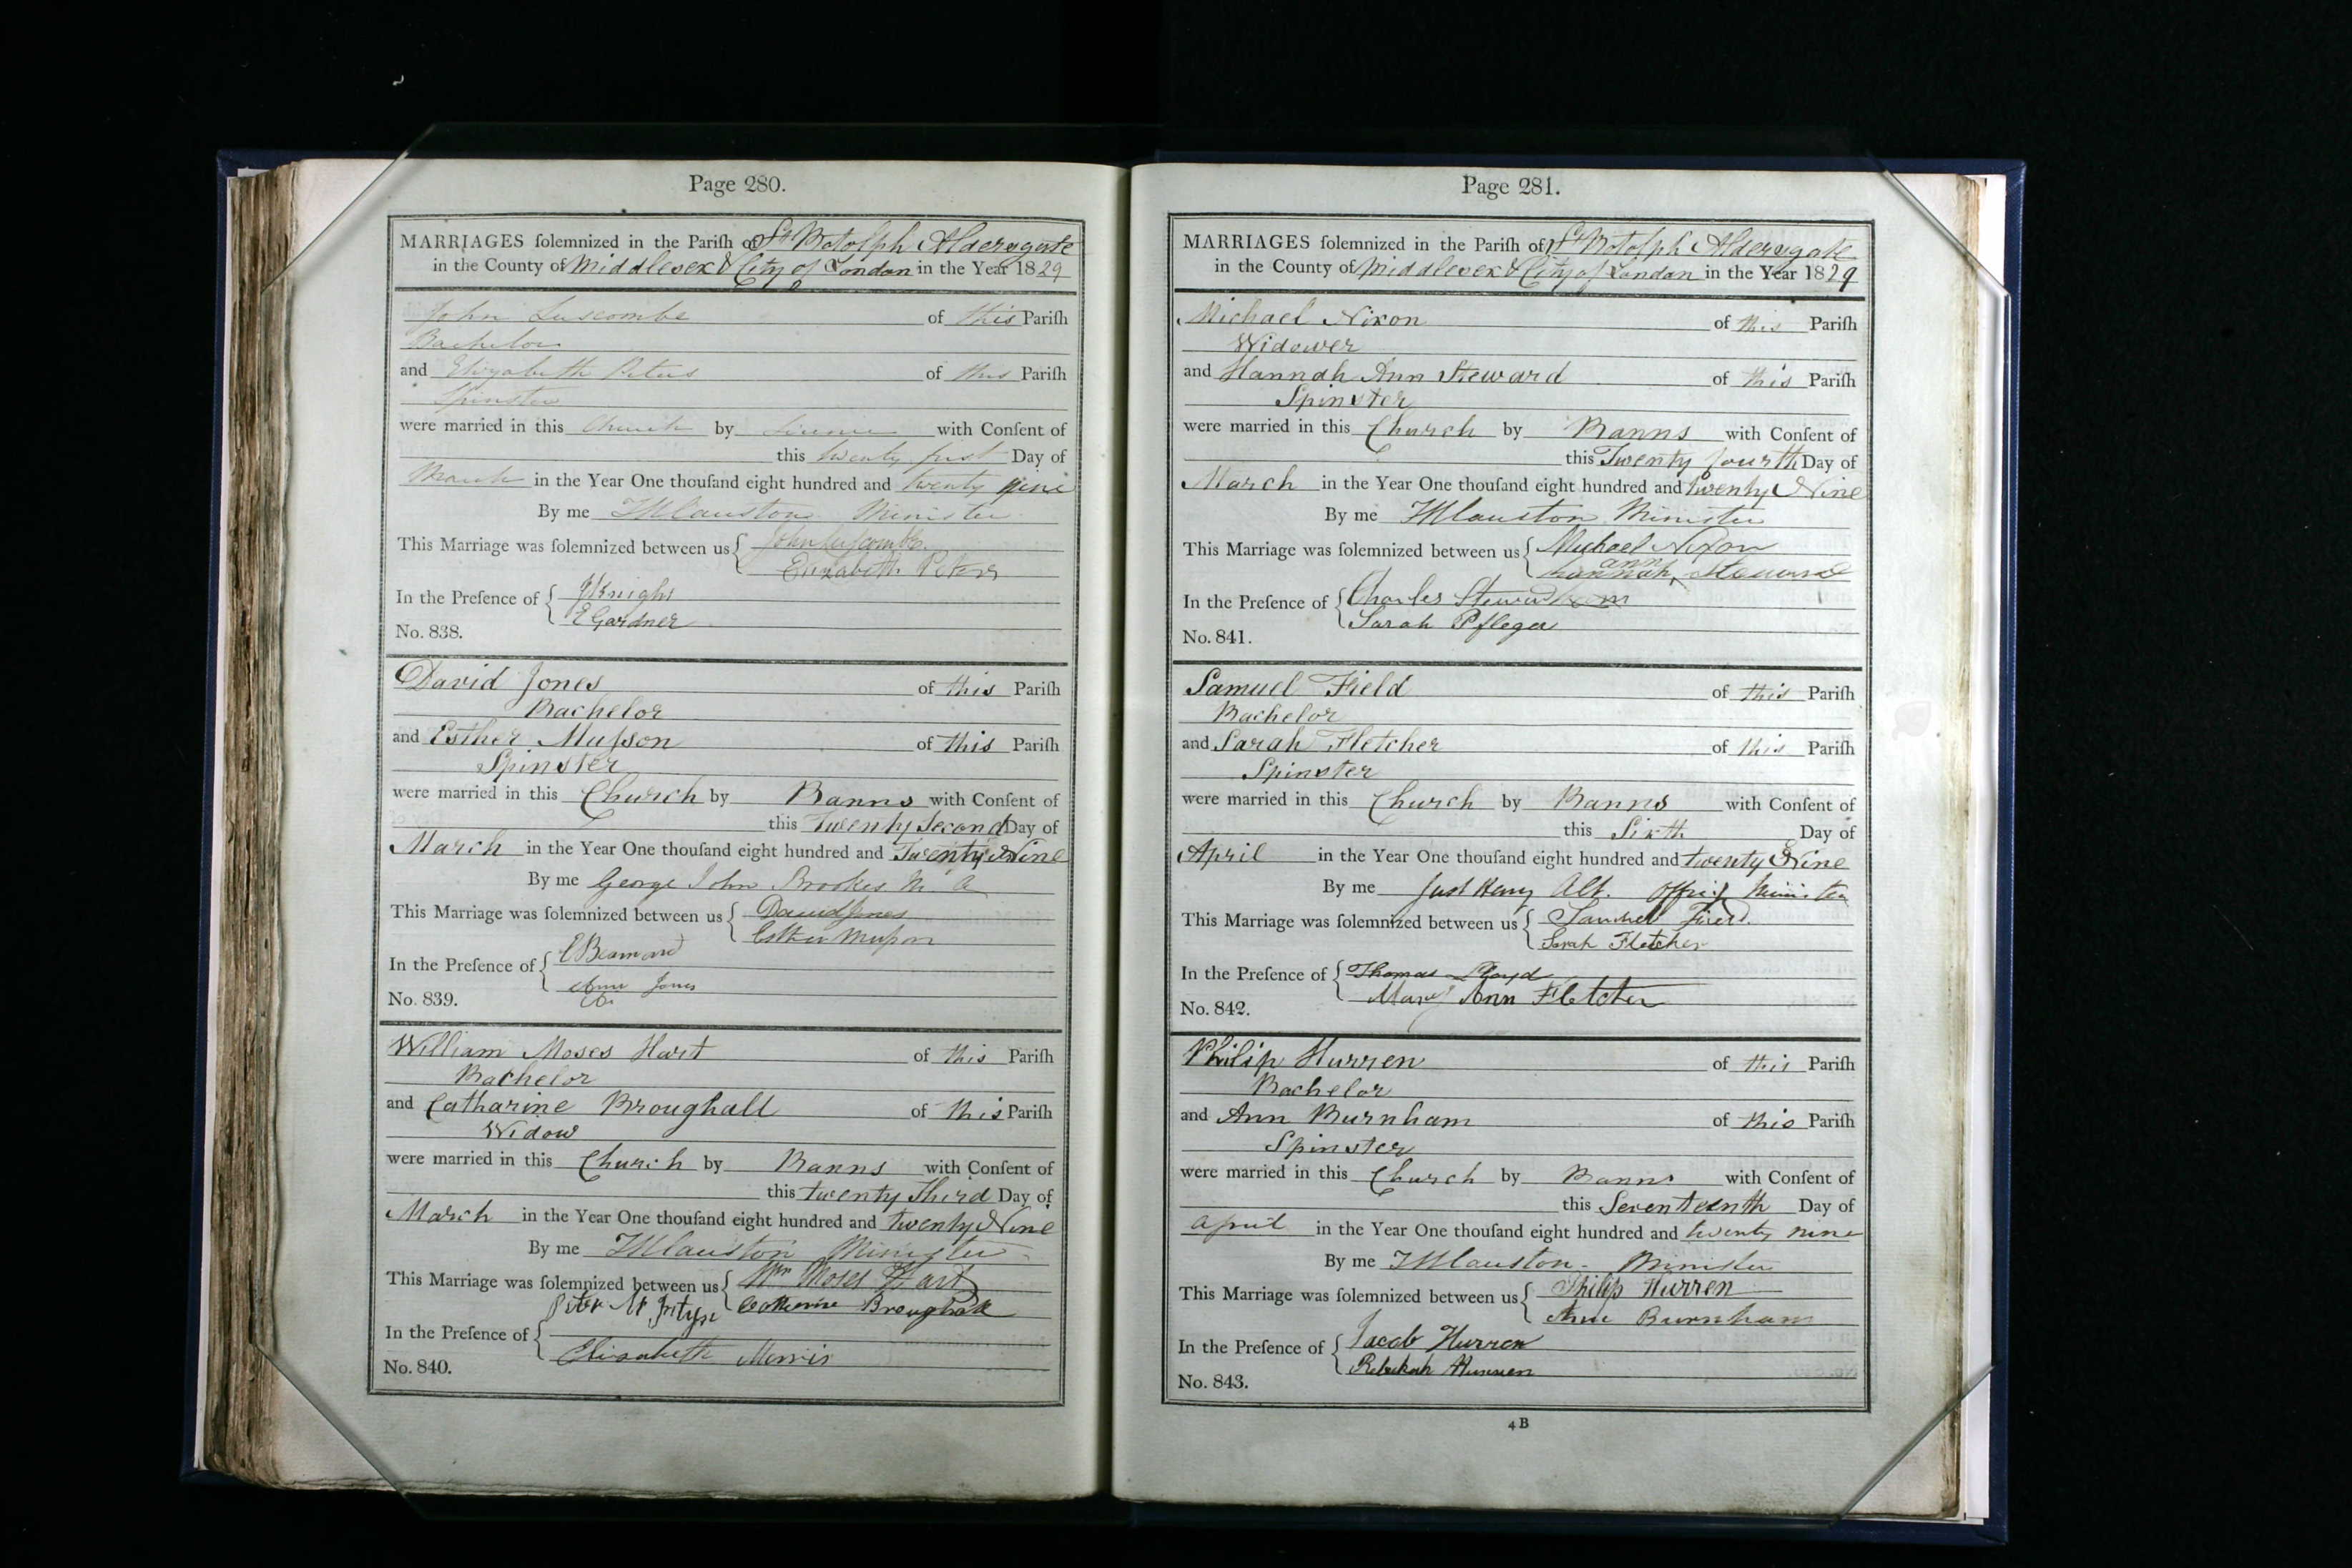 Page 280.
MARRIAGES ſolemnized in the Pariſh of St Botolph Aldersgate
in the County of Middlesex & City of London in the Year 1829
John Luscombe of this Pariſh
Bachelor
and Elizabeth Peters of this Pariſh
Spinster
were married in this Church by Licence with Conſent of
this twenty first Day of
March in the Year One thouſand eight hundred and twenty nine
By me Minister
This Marriage was ſolemnized between us { John Luſcombe
Elizabeth Peters
In the Preſence of { J Knight
E Gardner
No. 838.
David Jones of this Pariſh
Bachelor
and Esther Muſson of this Pariſh
Spinster
were married in this Church by Banns with Conſent of
this Twenty Second Day of
March in the Year One thouſand eight hundred and Twenty Nine
By me George John Brookes M. A
This Marriage was ſolemnized between us { David Jones
Esther Muſson
In the Preſence of { E Beamond
Ann Jones
No. 839.
William Moses Hart of this Pariſh
Bachelor
and Catharine Broughall of this Pariſh
Widow
were married in this Church by Banns with Conſent of
this twenty Third Day of
March in the Year One thouſand eight hundred and twenty Nine
By me Minister
This Marriage was ſolemnized between us { Wm Moses Hart
Catherine Broughall
Peter
In the Preſence of {
Elizabeth Morris
No. 840.
Page 281.
MARRIAGES ſolemnized in the Pariſh of St Botolph Aldersgate
in the County of Middlesex & City of London in the Year 1829
Michael Nixon of this Pariſh
Widower
and Hannah Ann Steward of this Pariſh
Spinster
were married in this Church by Banns with Conſent of
this Twenty fourth Day of
March in the Year One thouſand eight hundred and twenty Nine
By me Minister
This Marriage was ſolemnized between us { Michael Nixon
ann
hannah Steward
In the Preſence of { Charles Steward
Sarah Pfleger
No. 841.
Samuel Field of this Pariſh
Bachelor
and Sarah Fletcher of this Pariſh
Spinster
were married in this Church by Banns with Conſent of
this Sixth Day of
April in the Year One thouſand eight hundred and twenty Nine
By me Just Henry Alt. Offig Minister
This Marriage was ſolemnized between us { Samuel Field.
Sarah Fletcher
In the Preſence of { Thomas Floyd
Mary Ann Fletcher
No. 842.
Philip Hurren of this Pariſh
Bachelor
and Ann Burnham of this Pariſh
Spinster
were married in this Church by Banns with Conſent of
this Seventeenth Day of
April in the Year One thouſand eight hundred and twenty nine
By me Minister
This Marriage was ſolemnized between us { Philip Hurren
Ann Burnham
In the Preſence of { Jacob Hurren
Rebekah Hurren
No. 843.
4 B